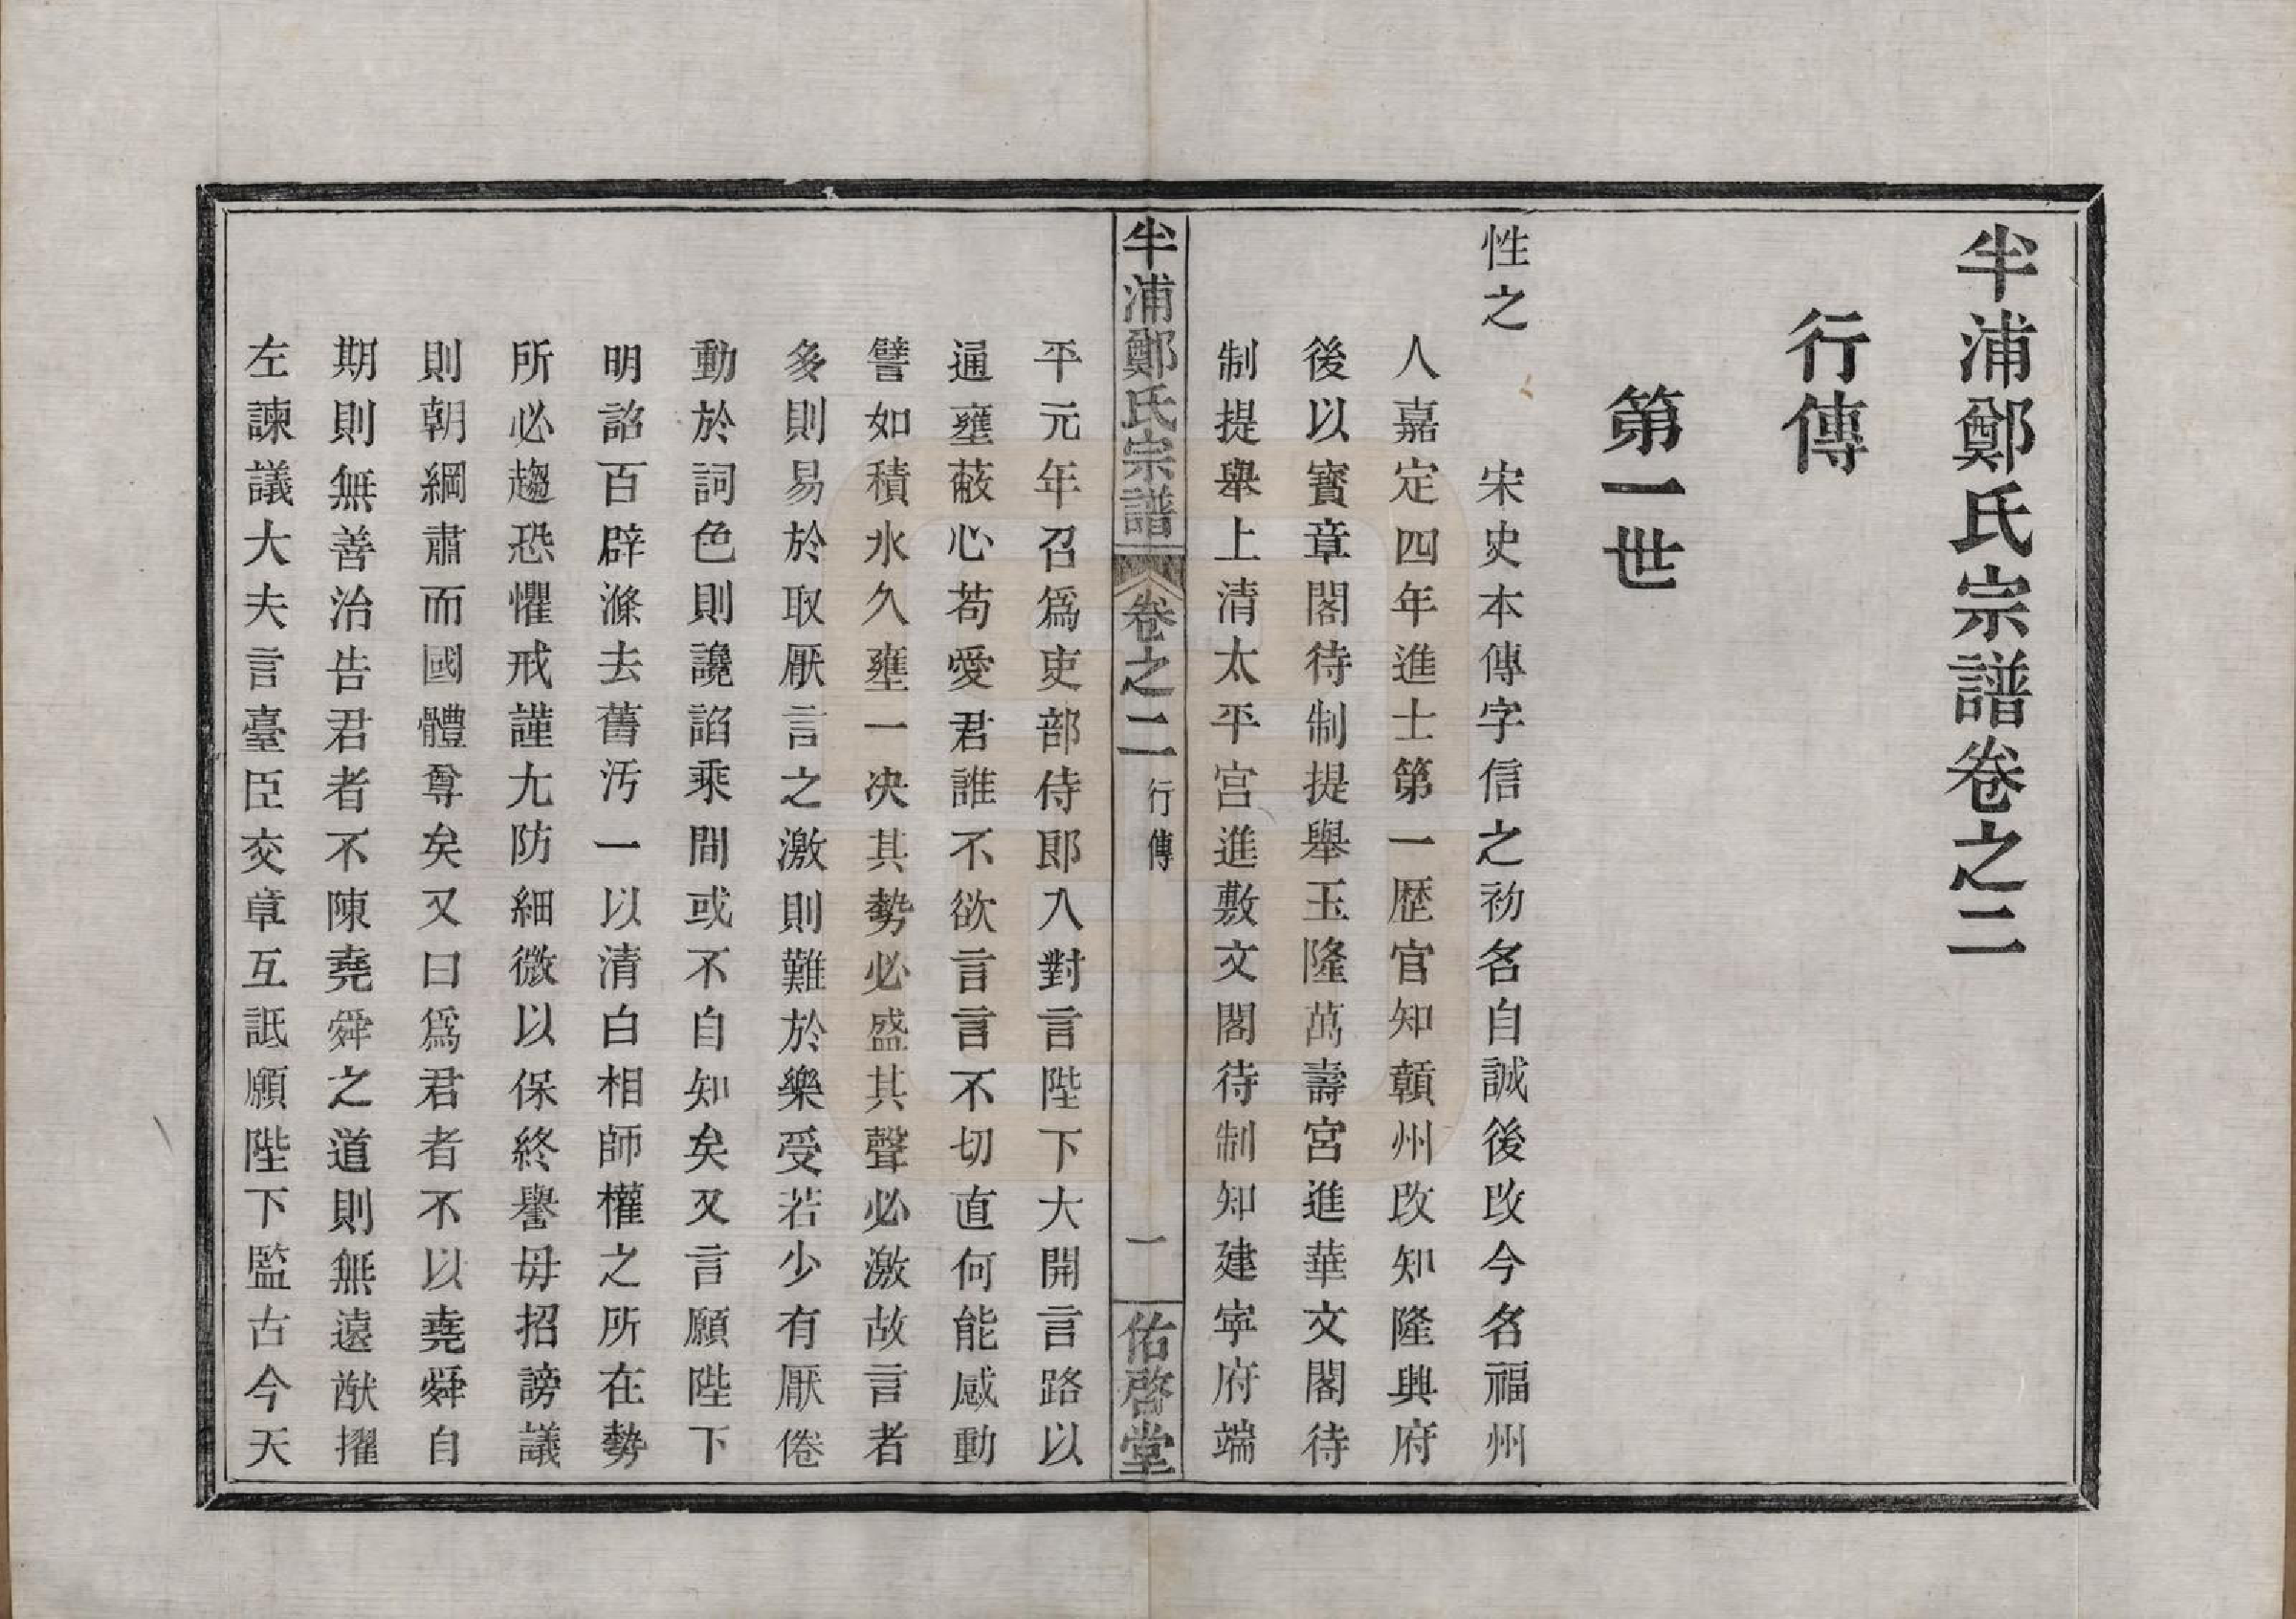 半浦鄭氏宗譜卷之二
行傳
第一世
性之
宋史本傳字信之初名自誠後改今名福州
人嘉定四年進士第一歷官知贛州改知隆興府
後以寶章閣待制提舉玉隆萬壽宮進華文閣待
制提舉上清太平宮進敷文閣待制知建寧府端
半浦鄭氏宗譜 卷之二 行傳 一 佑啓堂
平元年召爲吏部侍郎入對言陛下大開言路以
通壅蔽心苟愛君誰不欲言言不切直何能感動
譬如積水久壅一决其勢必盛其聲必激故言者
多則易於取厭言之激則難於樂受若少有厭倦
動於詞色則讒諂乘間或不自知矣又言願陛下
明詔百辟滌去舊汚一以清白相師權之所在勢
所必趨恐懼戒謹尤防細微以保終譽毋招謗議
則朝綱肅而國體尊矣又曰爲君者不以堯舜自
期則無善治告君者不陳堯舜之道則無遠猷擢
左諫議大夫言臺臣交章互詆願陛下監古今天